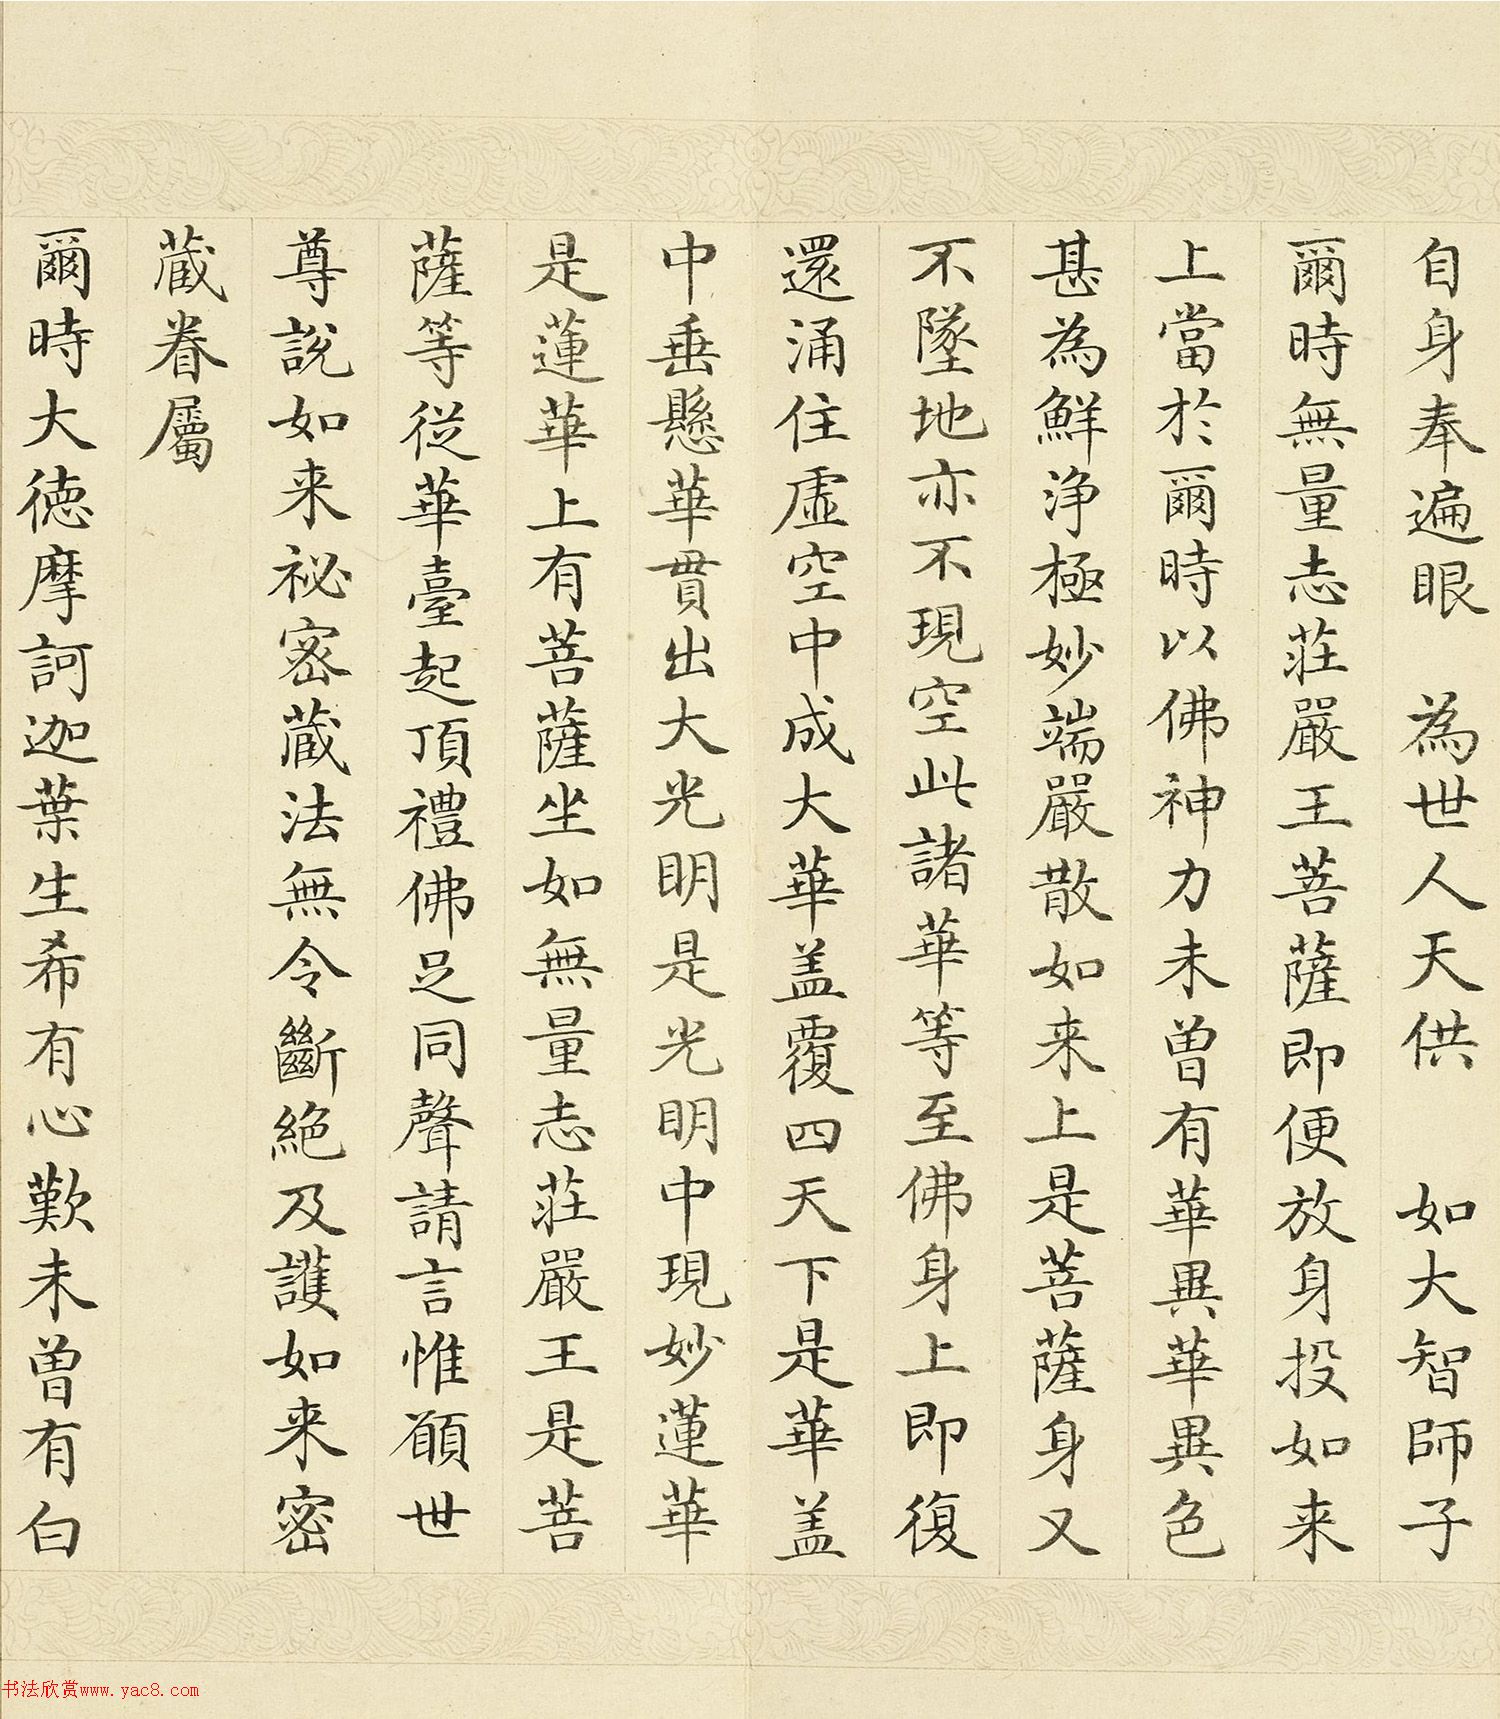 自身奉遍眼　為世人天供　如大智師子
爾時無量志莊嚴王菩薩即便放身投如来
上當於爾時以佛神力未曾有華異華異色
甚為鮮淨極妙端嚴散如来上是菩薩身又
不墜地亦不現空此諸華等至佛身上即復
還涌住虛空中成大華盖覆四天下是華盖
中垂懸華貫出大光明是光明中現妙蓮華
是蓮華上有菩薩坐如無量志莊嚴王是菩
薩等從華臺起頂禮佛足同聲請言惟願世
尊說如来祕密蔵法無令斷絕及護如来密
蔵眷屬
爾時大德摩訶迦葉生希有心歎未曾有白
书法欣赏www.yac8.com